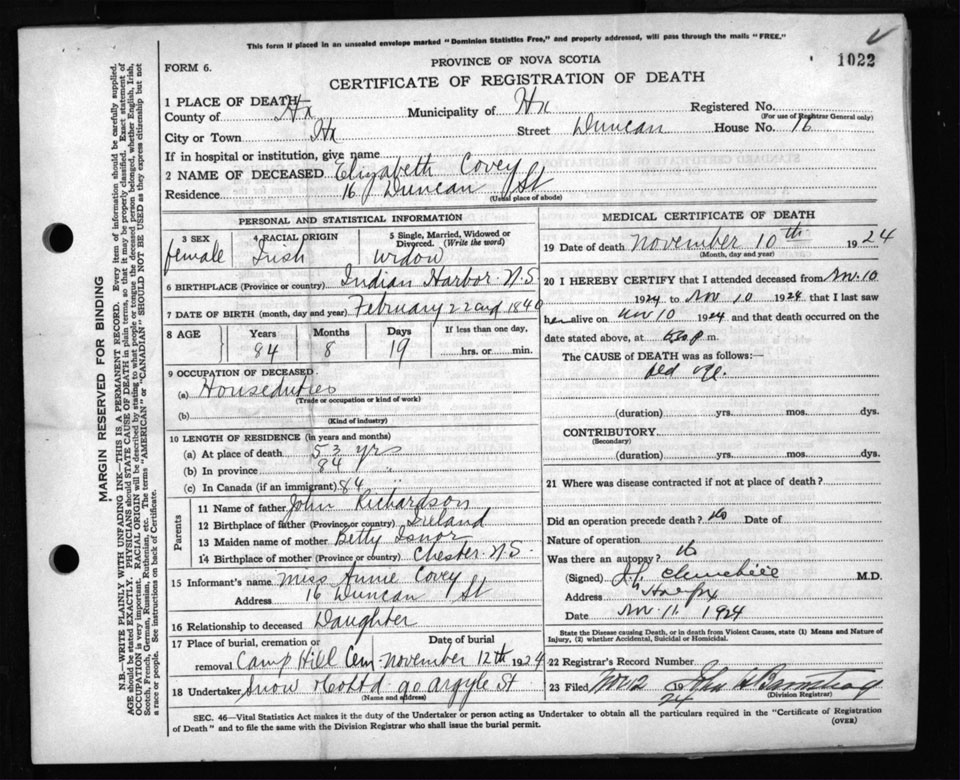 This form if placed in an unsealed envelope marked "Dominion Statistics Free," and properly addressed, will pass through the mails "FREE."
1022
PROVINCE OF NOVA SCOTIA
FORM 6.
CERTIFICATE OF REGISTRATION OF DEATH
1 PLACE OF DEATH
County of Hx Municipality of Hx Registered No.
(For use of Registrar General only)
City or Town Hx Street Duncan House No. 16
If in hospital or institution, give name
2 NAME OF DECEASED Elizabeth Covey
Residence 16 Duncan St
(Usual place of abode)
PERSONAL AND STATISTICAL INFORMATION
3 SEX 4 RACIAL ORIGIN 5 Single, Married, Widowed or Divorced. (Write the word)
female Irish widow
6 BIRTHPLACE (Province or country) Indian Harbor. N.S
7 DATE OF BIRTH (month, day and year) February 22nd 1840
8 AGE Years Months Days If less than one day,
84 8 19 hrs. or min.
9 OCCUPATION OF DECEASED.
(a) Houseduties
(Trade or occupation or kind of work)
(b)
(Kind of industry)
10 LENGTH OF RESIDENCE (in years and months)
(a) At place of death 53 yrs
(b) In province 84 "
(c) In Canada (if an immigrant) 84 "
Parents
11 Name of father John Richardson
12 Birthplace of father (Province or country) Ireland
13 Maiden name of mother Betty Isnor
14 Birthplace of mother (Province or country) Chester N.S.
15 Informant's name Miss Annie Covey
Address 16 Duncan St
16 Relationship to deceased Daughter
17 Place of burial, cremation or removal Date of burial
Camp Hill Cem. November 12th 1924
18 Undertaker Snow & Co Ltd 90 Argyle St
(Name and address)
MEDICAL CERTIFICATE OF DEATH
19 Date of death November 10th 1924
(Month, day and year)
20 I HEREBY CERTIFY that I attended deceased from Nov. 10
1924 to Nov 10 1924 that I last saw
her alive on Nov 10 1924 and that death occurred on the
date stated above, at m.
The CAUSE OF DEATH was as follows:
old age.
(duration) yrs. mos. dys.
CONTRIBUTORY
(Secondary)
(duration) yrs. mos. dys.
21 Where was disease contracted if not at place of death?
Did an operation precede death? No Date of
Nature of operation
Was there an autopsy? No
(Signed) M.D.
Address Halifax
Date Nov. 11. 1924
State the Disease causing Death, or in death from Violent Causes, state (1) Means and Nature of
Injury, (2) whether Accidental, Suicidal or Homicidal.
22 Registrar's Record Number
23 Filed Nov 12 1924
(Division Registrar)
SEC. 46—Vital Statistics Act makes it the duty of the Undertaker or person acting as Undertaker to obtain all the particulars required in the "Certificate of Registration
of Death" and to file the same with the Division Registrar who shall issue the burial permit.
(OVER)
MARGIN RESERVED FOR BINDING
N.B.—WRITE PLAINLY WITH UNFADING INK—THIS IS A PERMANENT RECORD. Every item of information should be carefully supplied.
AGE should be stated EXACTLY. PHYSICIANS should STATE CAUSE OF DEATH in plain terms, so that it may be properly classified. Exact statement of
OCCUPATION is very important. RACIAL ORIGIN will be described by stating to what people or tongue the deceased person belonged, whether English, Irish,
Scotch, French, German, Russian, Ruthenian, etc. The terms "AMERICAN" or "CANADIAN" SHOULD NOT BE USED as they express citizenship but not
a race or people. See instructions on back of Certificate.